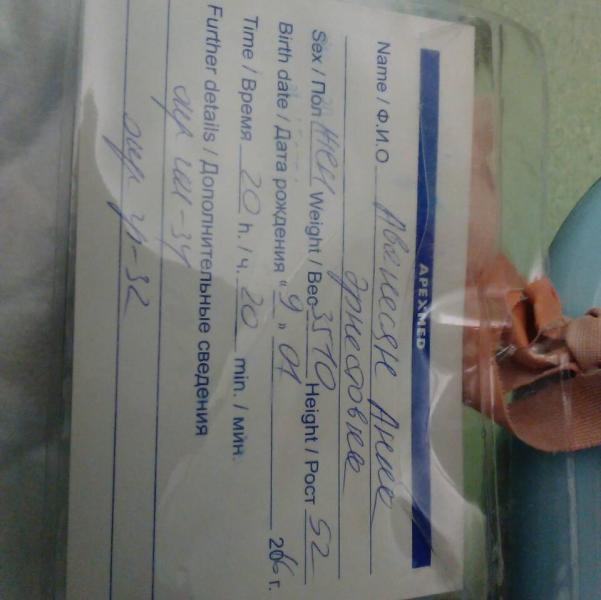 APEXMED
Name / Ф.И.О Аванесян Анна
Эрнестовна
Sex / Пол жен Weight / Вес 3510 Height / Рост 52
Birth date / Дата рождения " 9 " 01 2016 г.
Time / Время 20 h. / ч. 20 min. / мин.
Further details / Дополнительные сведения
окр гол-34
окр гр-32